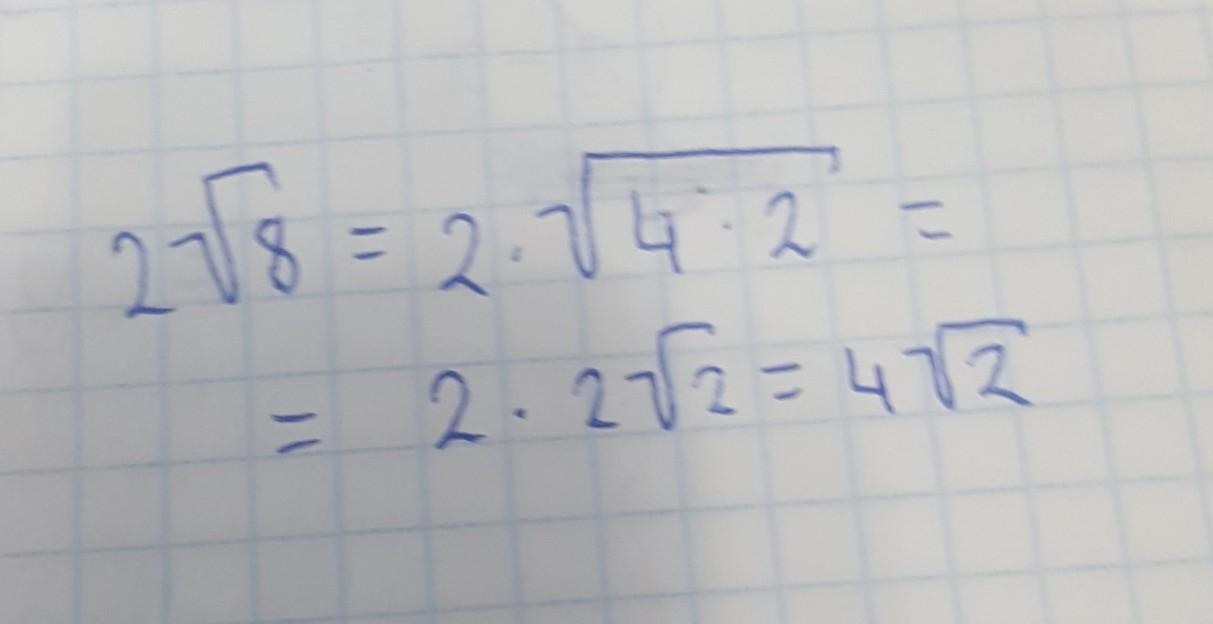 2√8 = 2·√(4·2) =
= 2·2√2 = 4√2